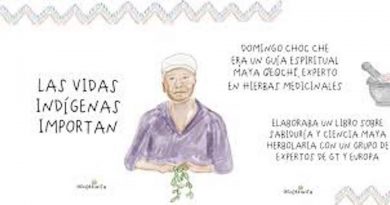 LAS VIDAS
INDÍGENAS
IMPORTAN
DOMINGO CHOC CHE
ERA UN GUÍA ESPIRITUAL
MAYA Q'EQCHÍ, EXPERTO
EN HIERBAS MEDICINALES
ELABORABA UN LIBRO SOBRE
SABIDURÍA Y CIENCIA MAYA
HERBOLARIA CON UN GRUPO DE
EXPERTOS DE GT Y EUROPA